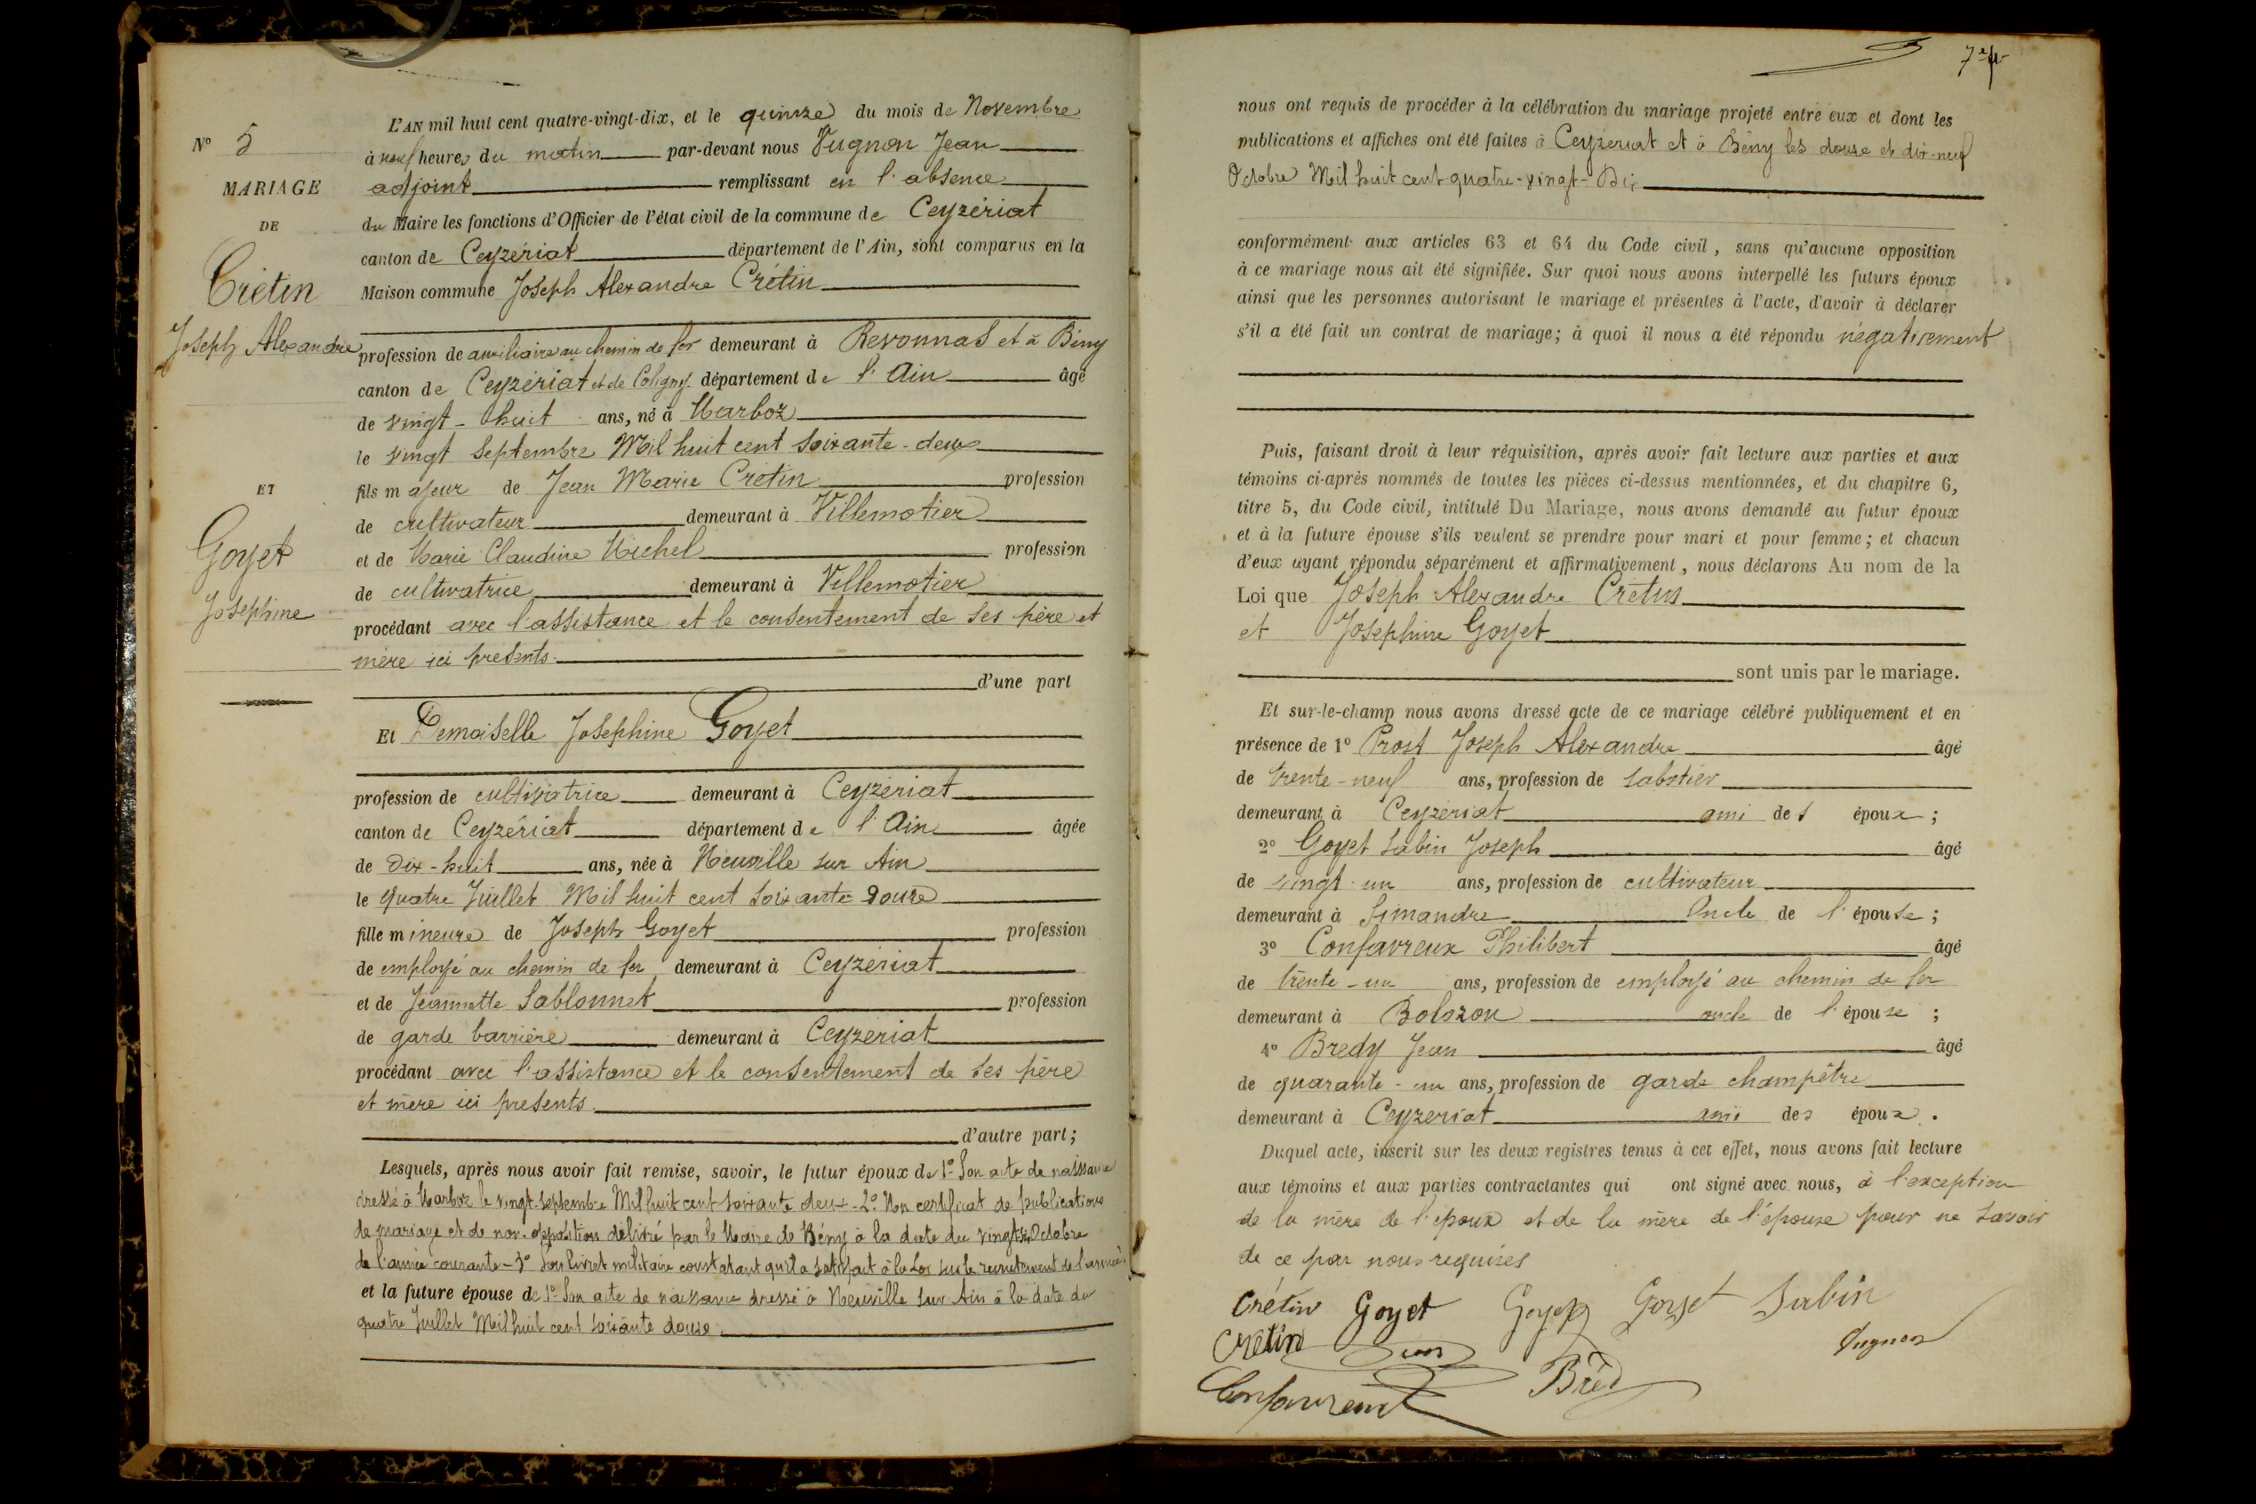 N° 5
MARIAGE
DE
Crétin
Joseph Alexandre
ET
Goyet
Joséphine
L'AN mil huit cent quatre-vingt-dix, et le quinze du mois de Novembre
à neuf heures du matin par-devant nous Vugnon Jean
adjoint remplissant en l'absence
du Maire les fonctions d'Officier de l'état civil de la commune de Ceyzériat
canton de Ceyzériat département de l'Ain, sont comparus en la
Maison commune Joseph Alexandre Crétin
profession de auxiliaire au chemin de fer demeurant à Revonnas et à Bény
canton de Ceyzériat et de Coligny département de l'Ain âgé
de vingt-huit ans, né à Marboz
le vingt septembre Mil huit cent soixante-deux
fils majeur de Jean Marie Crétin profession
de cultivateur demeurant à Villemotier
et de Marie Claudine Michel profession
de cultivatrice demeurant à Villemotier
procédant avec l'assistance et le consentement de ses père et
mère ici présents
d'une part
Et Demoiselle Joséphine Goyet
profession de cultivatrice demeurant à Ceyzériat
canton de Ceyzériat département de l'Ain âgée
de Dix-huit ans, née à Neuville sur Ain
le quatre Juillet Mil huit cent soixante douze
fille mineure de Joseph Goyet profession
de employé au chemin de fer demeurant à Ceyzériat
et de Jeannette Sablonnet profession
de garde barrière demeurant à Ceyzériat
procédant avec l'assistance et le consentement de ses père
et mère ici présents
d'autre part;
Lesquels, après nous avoir fait remise, savoir, le futur époux de 1° Son acte de naissance
dressé à Marboz le vingt-septembre Mil huit cent soixante deux - 2° Un certificat de publications
de mariage et de non-opposition délivré par le Maire de Bény à la date du Octobre
de l'année courante - 3° Son livret militaire constatant qu'il a satisfait à la Loi sur le recrutement de l'armée
et la future épouse de 1° Son acte de naissance dressé à Neuville sur Ain à la date du
quatre Juillet Mil huit cent soixante douze
nous ont requis de procéder à la célébration du mariage projeté entre eux et dont les
publications et affiches ont été faites à Ceyzériat et à Bény les douze et dix-neuf
Octobre Mil huit cent quatre-vingt-Dix
conformément aux articles 63 et 64 du Code civil, sans qu'aucune opposition
à ce mariage nous ait été signifiée. Sur quoi nous avons interpellé les futurs époux
ainsi que les personnes autorisant le mariage et présentes à l'acte, d'avoir à déclarer
s'il a été fait un contrat de mariage; à quoi il nous a été répondu négativement
Puis, faisant droit à leur réquisition, après avoir fait lecture aux parties et aux
témoins ci-après nommés de toutes les pièces ci-dessus mentionnées, et du chapitre 6,
titre 5, du Code civil, intitulé Du Mariage, nous avons demandé au futur époux
et à la future épouse s'ils veulent se prendre pour mari et pour femme; et chacun
d'eux ayant répondu séparément et affirmativement, nous déclarons Au nom de la
Loi que Joseph Alexandre Crétin
et Joséphine Goyet
sont unis par le mariage.
Et sur-le-champ nous avons dressé acte de ce mariage célébré publiquement et en
présence de 1° Prost Joseph Alexandre âgé
de trente-neuf ans, profession de sabotier
demeurant à Ceyzériat ami des époux;
2° Goyet Sabin Joseph âgé
de vingt-un ans, profession de cultivateur
demeurant à Simandre Oncle de l'épouse;
3° Confavreux Philibert âgé
de trente-un ans, profession de employé au chemin de fer
demeurant à Bolozon oncle de l'épouse;
4° Bredy Jean âgé
de quarante-un ans, profession de garde champêtre
demeurant à Ceyzériat ami des époux.
Duquel acte, inscrit sur les deux registres tenus à cet effet, nous avons fait lecture
aux témoins et aux parties contractantes qui ont signé avec nous, à l'exception
de la mère de l'époux et de la mère de l'épouse pour ne savoir
de ce par nous requises
Crétin Goyet Goyet Goyet Sabin
Crétin Vugnon
Confavreux